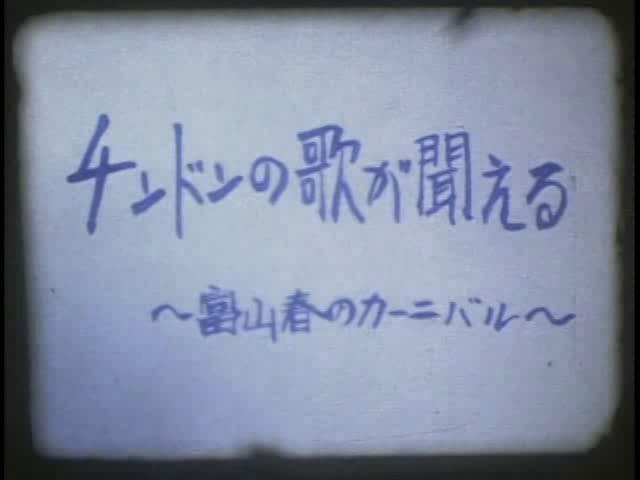 チンドンの歌が聞える
〜富山春のカーニバル〜